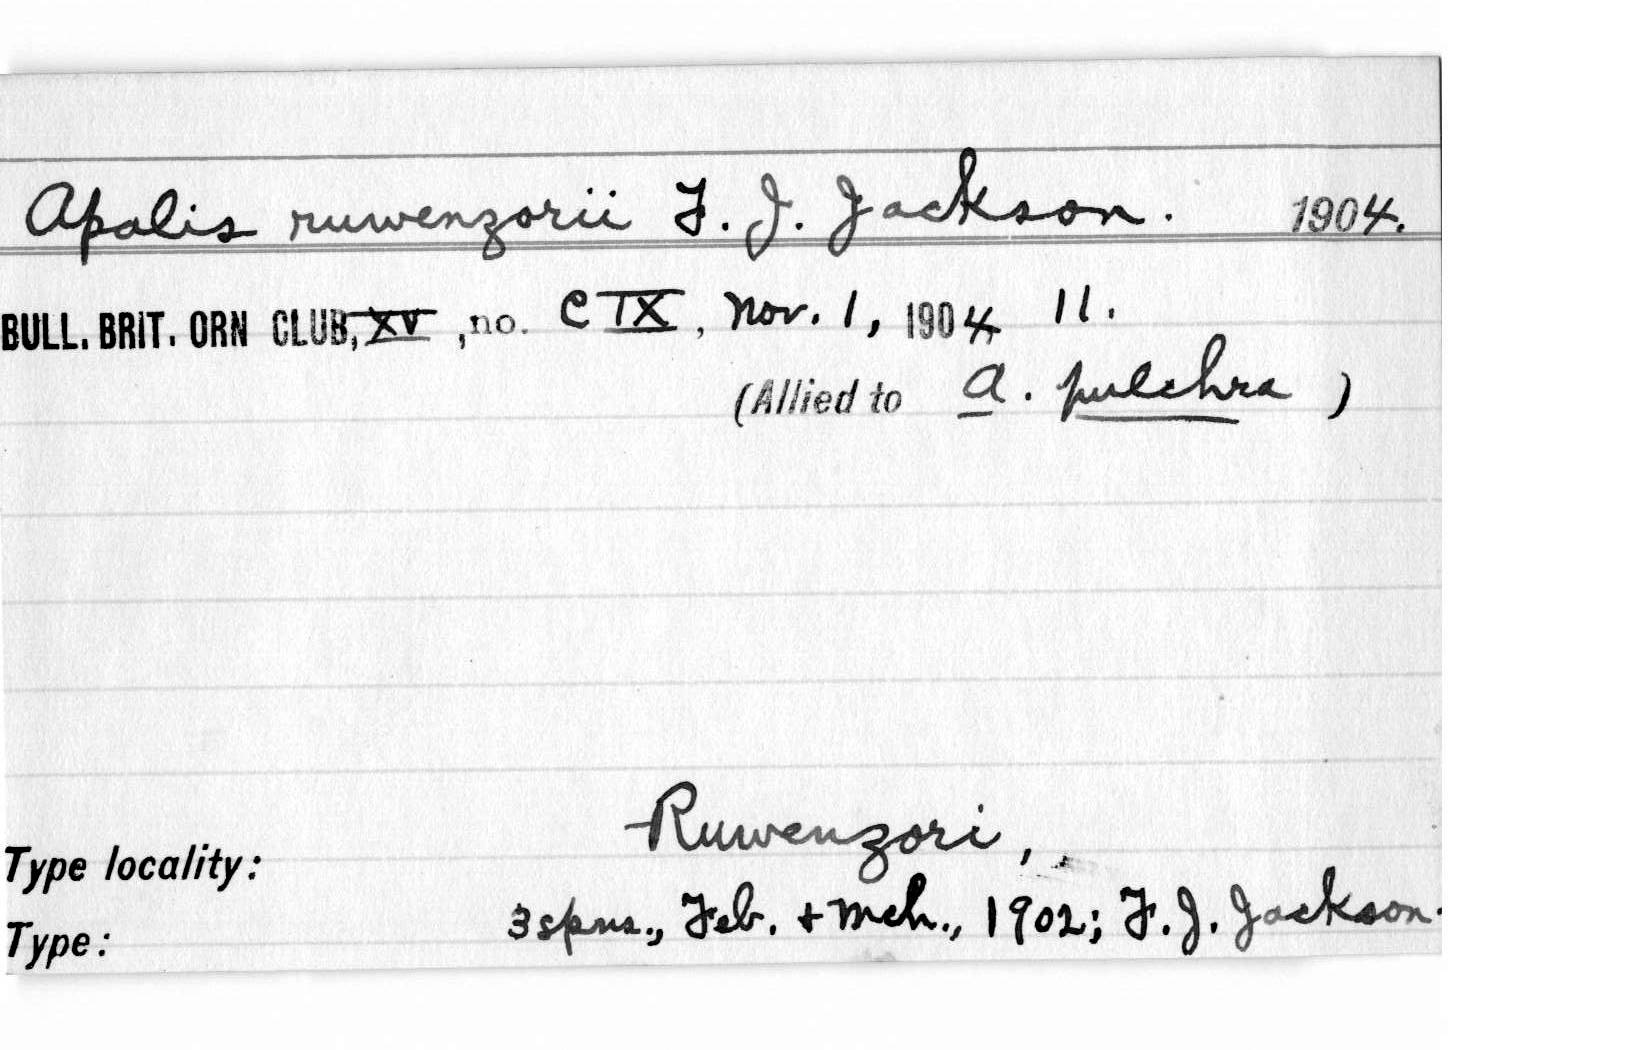 Apalis ruwenzorii F. J. Jackson. 1904.
BULL. BRIT. ORN CLUB, XV, no. CIX, Nov. 1, 1904 11.
(Allied to A. pulchra)
Ruwenzori,
Type locality:
3 spms., Feb. + Mch., 1902; F. J. Jackson.
Type: